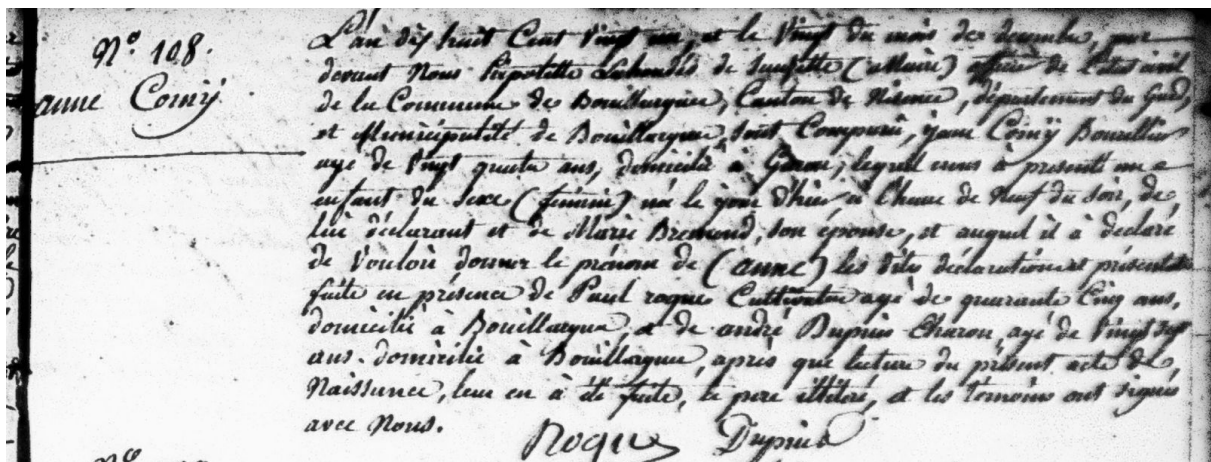 N.º 108.
anne Comÿ.
L'an dix huit Cent Vingt un, et le Vingt du mois de decembre, par
devant Nous hipolitte de (Maire) officier de l'état civil
de la Commune de Bouillargues, Canton de Nismes, département du Gard,
et Municipalité de Bouillargues, sont Comparu, Comÿ
agé de Vingt quatre ans, domicilié à Garon, lequel nous à presenté une
enfant du sexe (féminin) née le jour d'hier à l'heure de Neuf du soir, de
lui déclarant et de Marie Bremond, son épouse, et auquel il à déclaré
de Vouloir donner le prénom de (anne) les dites déclaration et présentation
faite en présence de Paul roque Cultivateur agé de quarante Cinq ans,
domicilié à Bouillargues et de andré Dupuis Charon, agé de Vingt sept
ans. domicilié à Bouillargues, après que lecture du présent acte de
Naissance, leur en à été faite, le pere illitéré, et les témoins ont signés
avec Nous.
Roque Dupuis
Nº